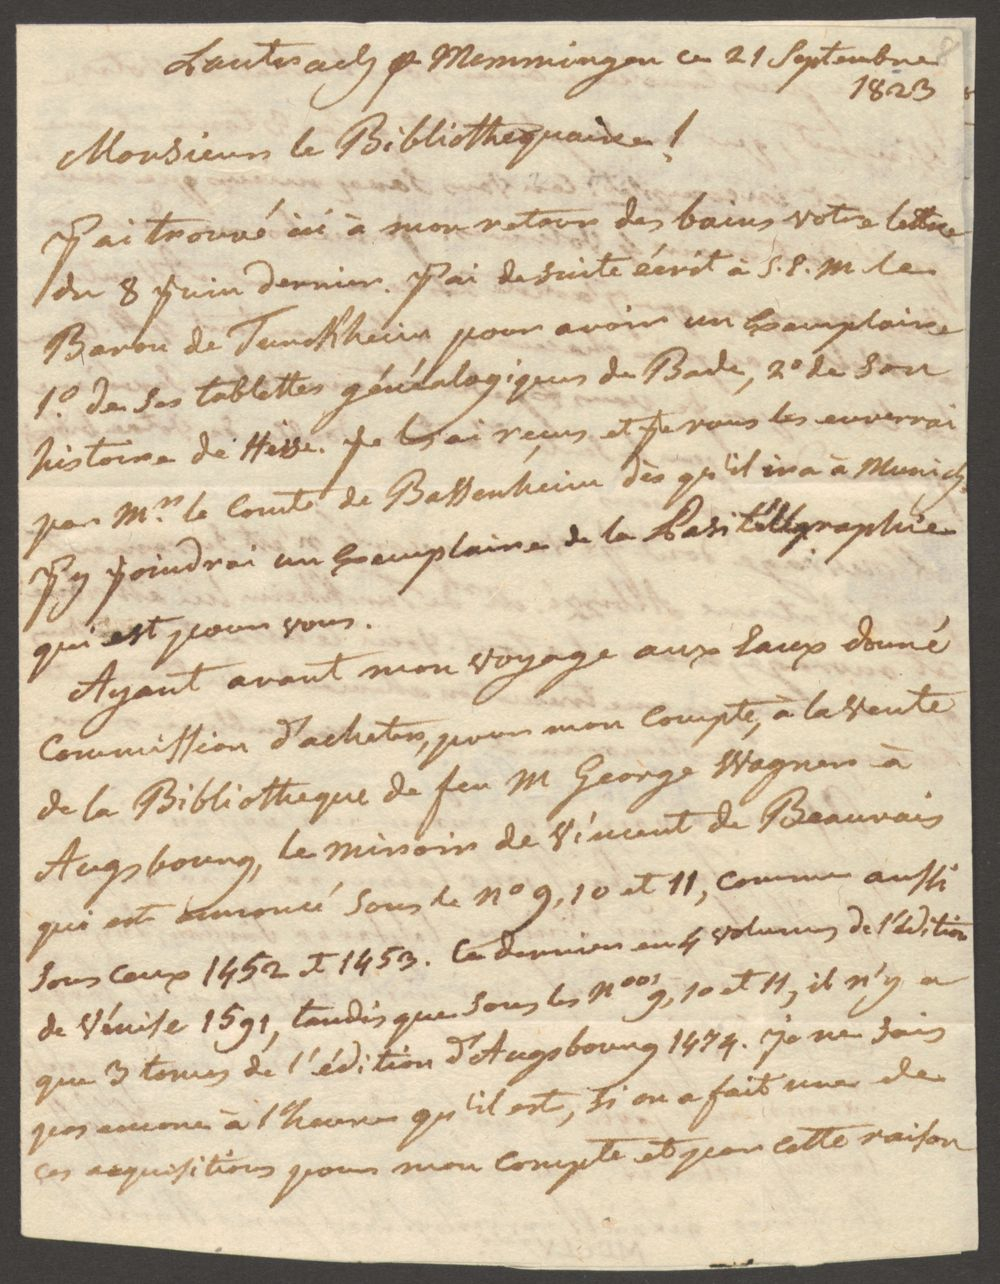 Lautrach p Memmingen ce 21 Septembre
1823
Monsieur le Bibliothequaire!
J'ai trouvé ici à mon retour des bains votre lettre
du 8 Juin dernier. J'ai de suite écrit a S. E. M le
Baron de Turckheim pour avoir un Exemplaire
1.º de ses tablettes généalogiques de Bade, 2º de son
histoire de Hesse. Je les ai reçus et Je vous les enverrai
par M.r le Comte de Bassenheim dès qu'il ira à Munich.
J'y joindrai un Exemplaire de la Pasitélégraphie
qui est pour vous.
Ayant avant mon voyage aux Eaux donné
Commission d'acheter, pour mon Compte, à la Vente
de la Bibliotheque de feu M George Wagner à
Augsbourg, le miroir de Vincent de Beauvais
qui est annoncé sous le Nº 9, 10 et 11, comme aussi
sous ceux 1452 et 1453. Ce dernier en 4 volumes de l'édition
de Vénise 1591, tandis que sous les Nºos 9, 10 et 11, il n'y a
que 3 tomes de l'édition d'Augsbourg 1474. Je ne sais
pas encore à l'heure qu'il est, si on a fait une de
ces acquisitions pour mon Compte et par cette raison